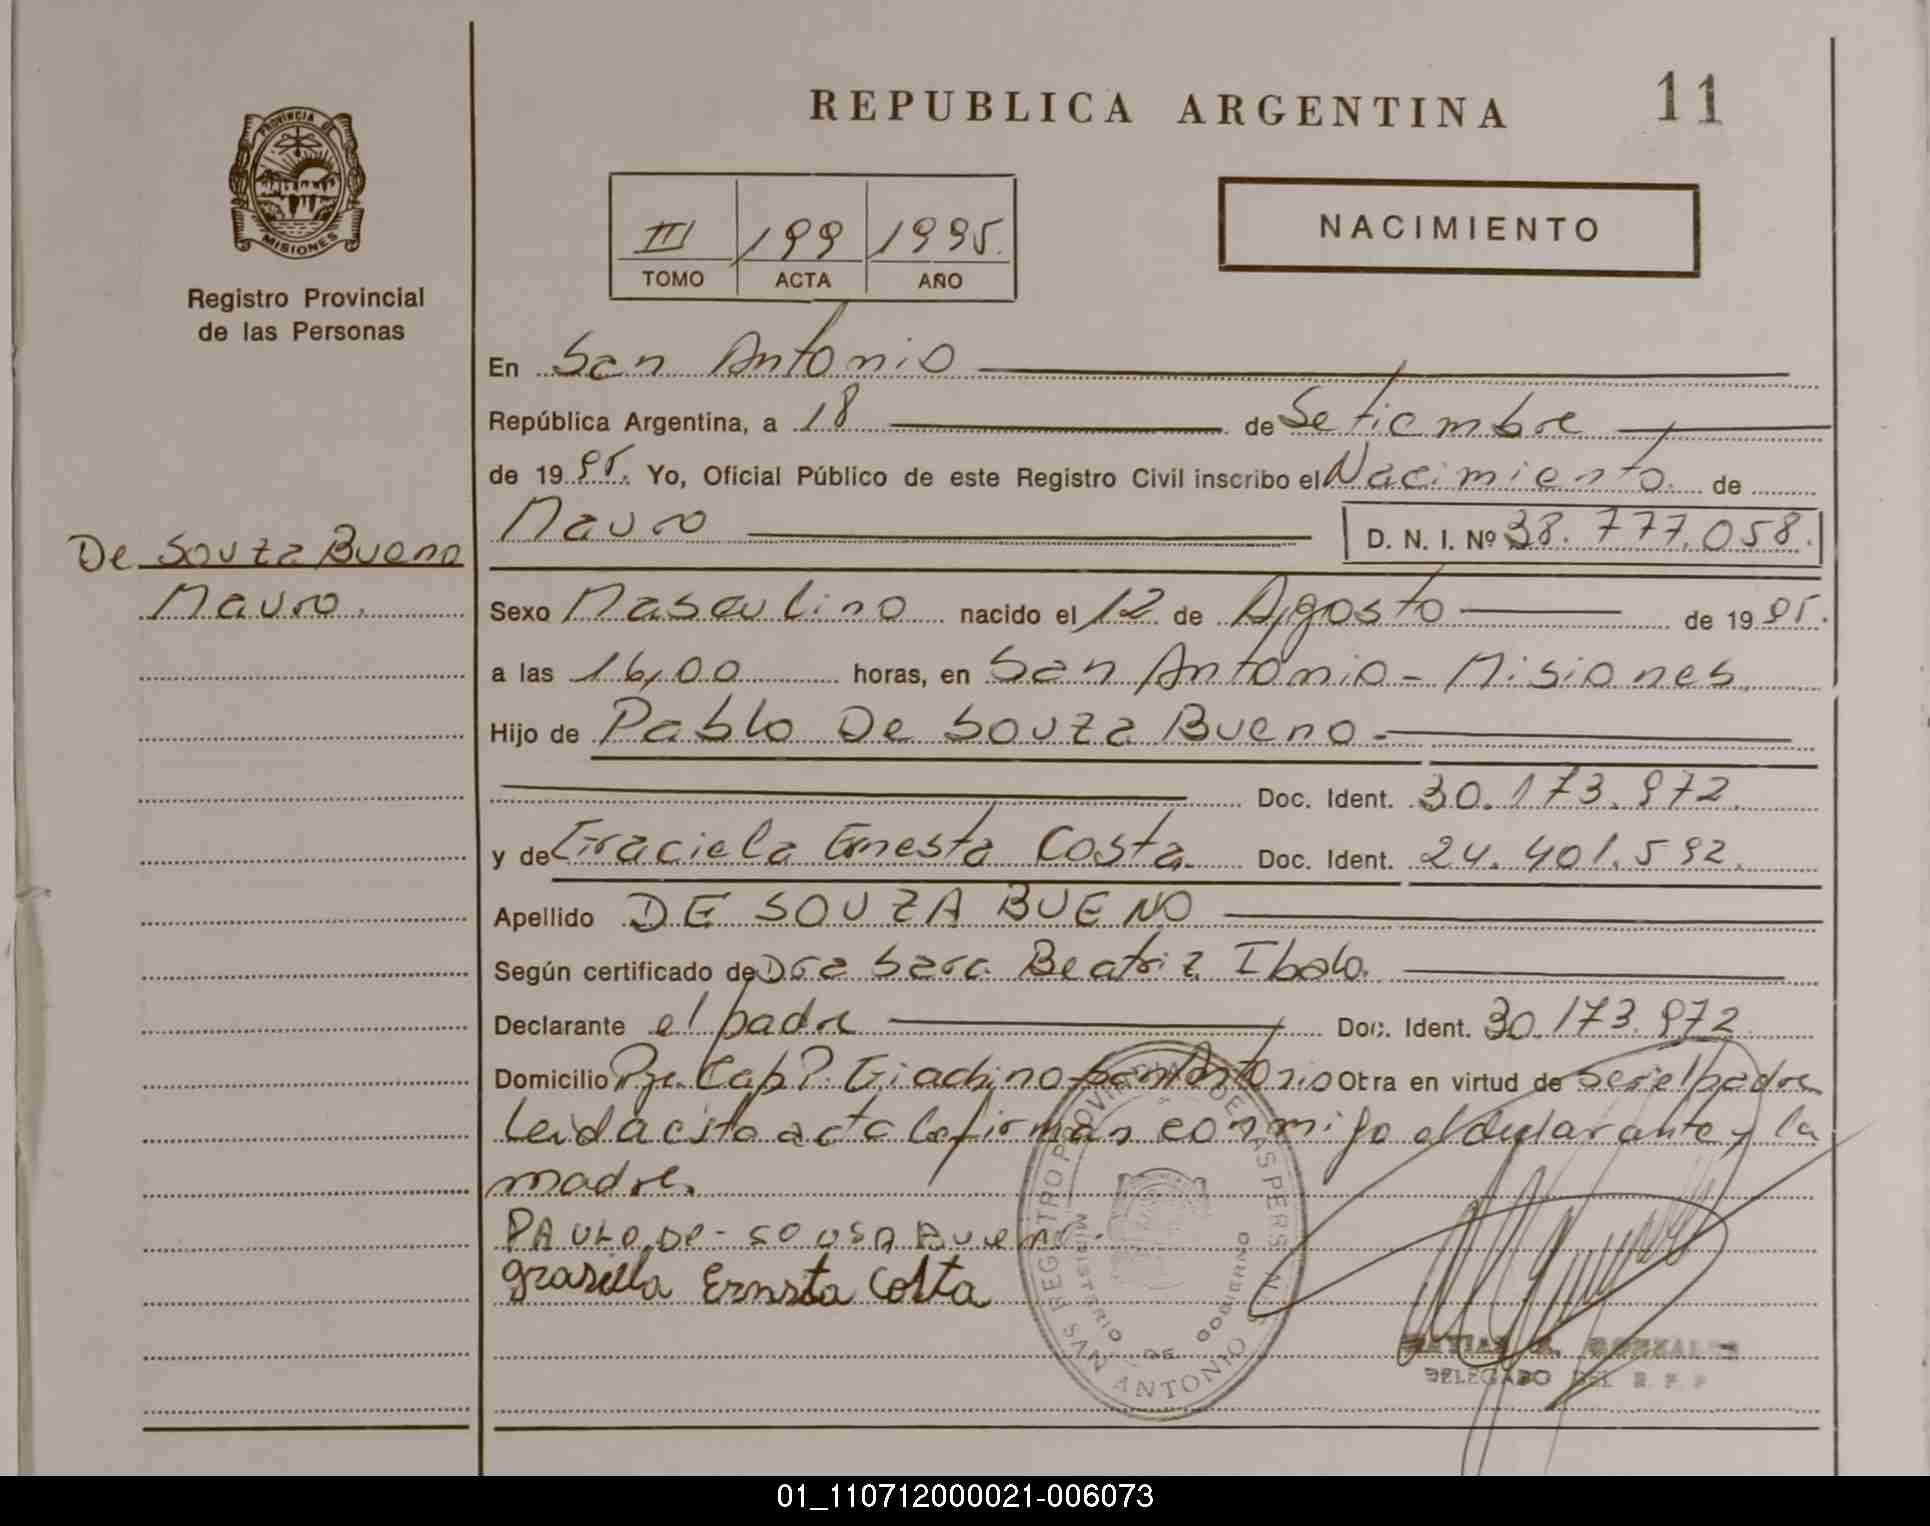 REPUBLICA ARGENTINA
11
PROVINCIA DE
MISIONES
Registro Provincial
de las Personas
III 199 1995.
TOMO ACTA AÑO
NACIMIENTO
En San Antonio
República Argentina, a 18 de Setiembre
de 1995. Yo, Oficial Público de este Registro Civil inscribo el Nacimiento de
Mauro D. N. I. Nº 38.777.058.
De Souza Bueno
Mauro.
Sexo Masculino nacido el 12 de Agosto de 1995.
a las 16,00 horas, en San Antonio - Misiones
Hijo de Pablo De Souza Bueno
Doc. Ident. 30.173.972.
y de Graciela Ernesta Costa. Doc. Ident. 24.401.592.
Apellido DE SOUZA BUENO
Según certificado de Dra Sara Beatriz
Declarante el padre Doc. Ident. 30.173.972
Domicilio Pje. Cap P. Giachino San Antonio Obra en virtud de ser el padre
Leida esta acta la firman conmigo el declarante y la
madre.
PAULO DE-SOUSA BUENO
Grasiela Ernsta Costa
REGISTRO PROVINCIAL DE LAS PERSONAS
MINISTERIO DE GOBIERNO
SAN ANTONIO
GONZALEZ
DELEGADO DEL R. P. P
01_110712000021-006073